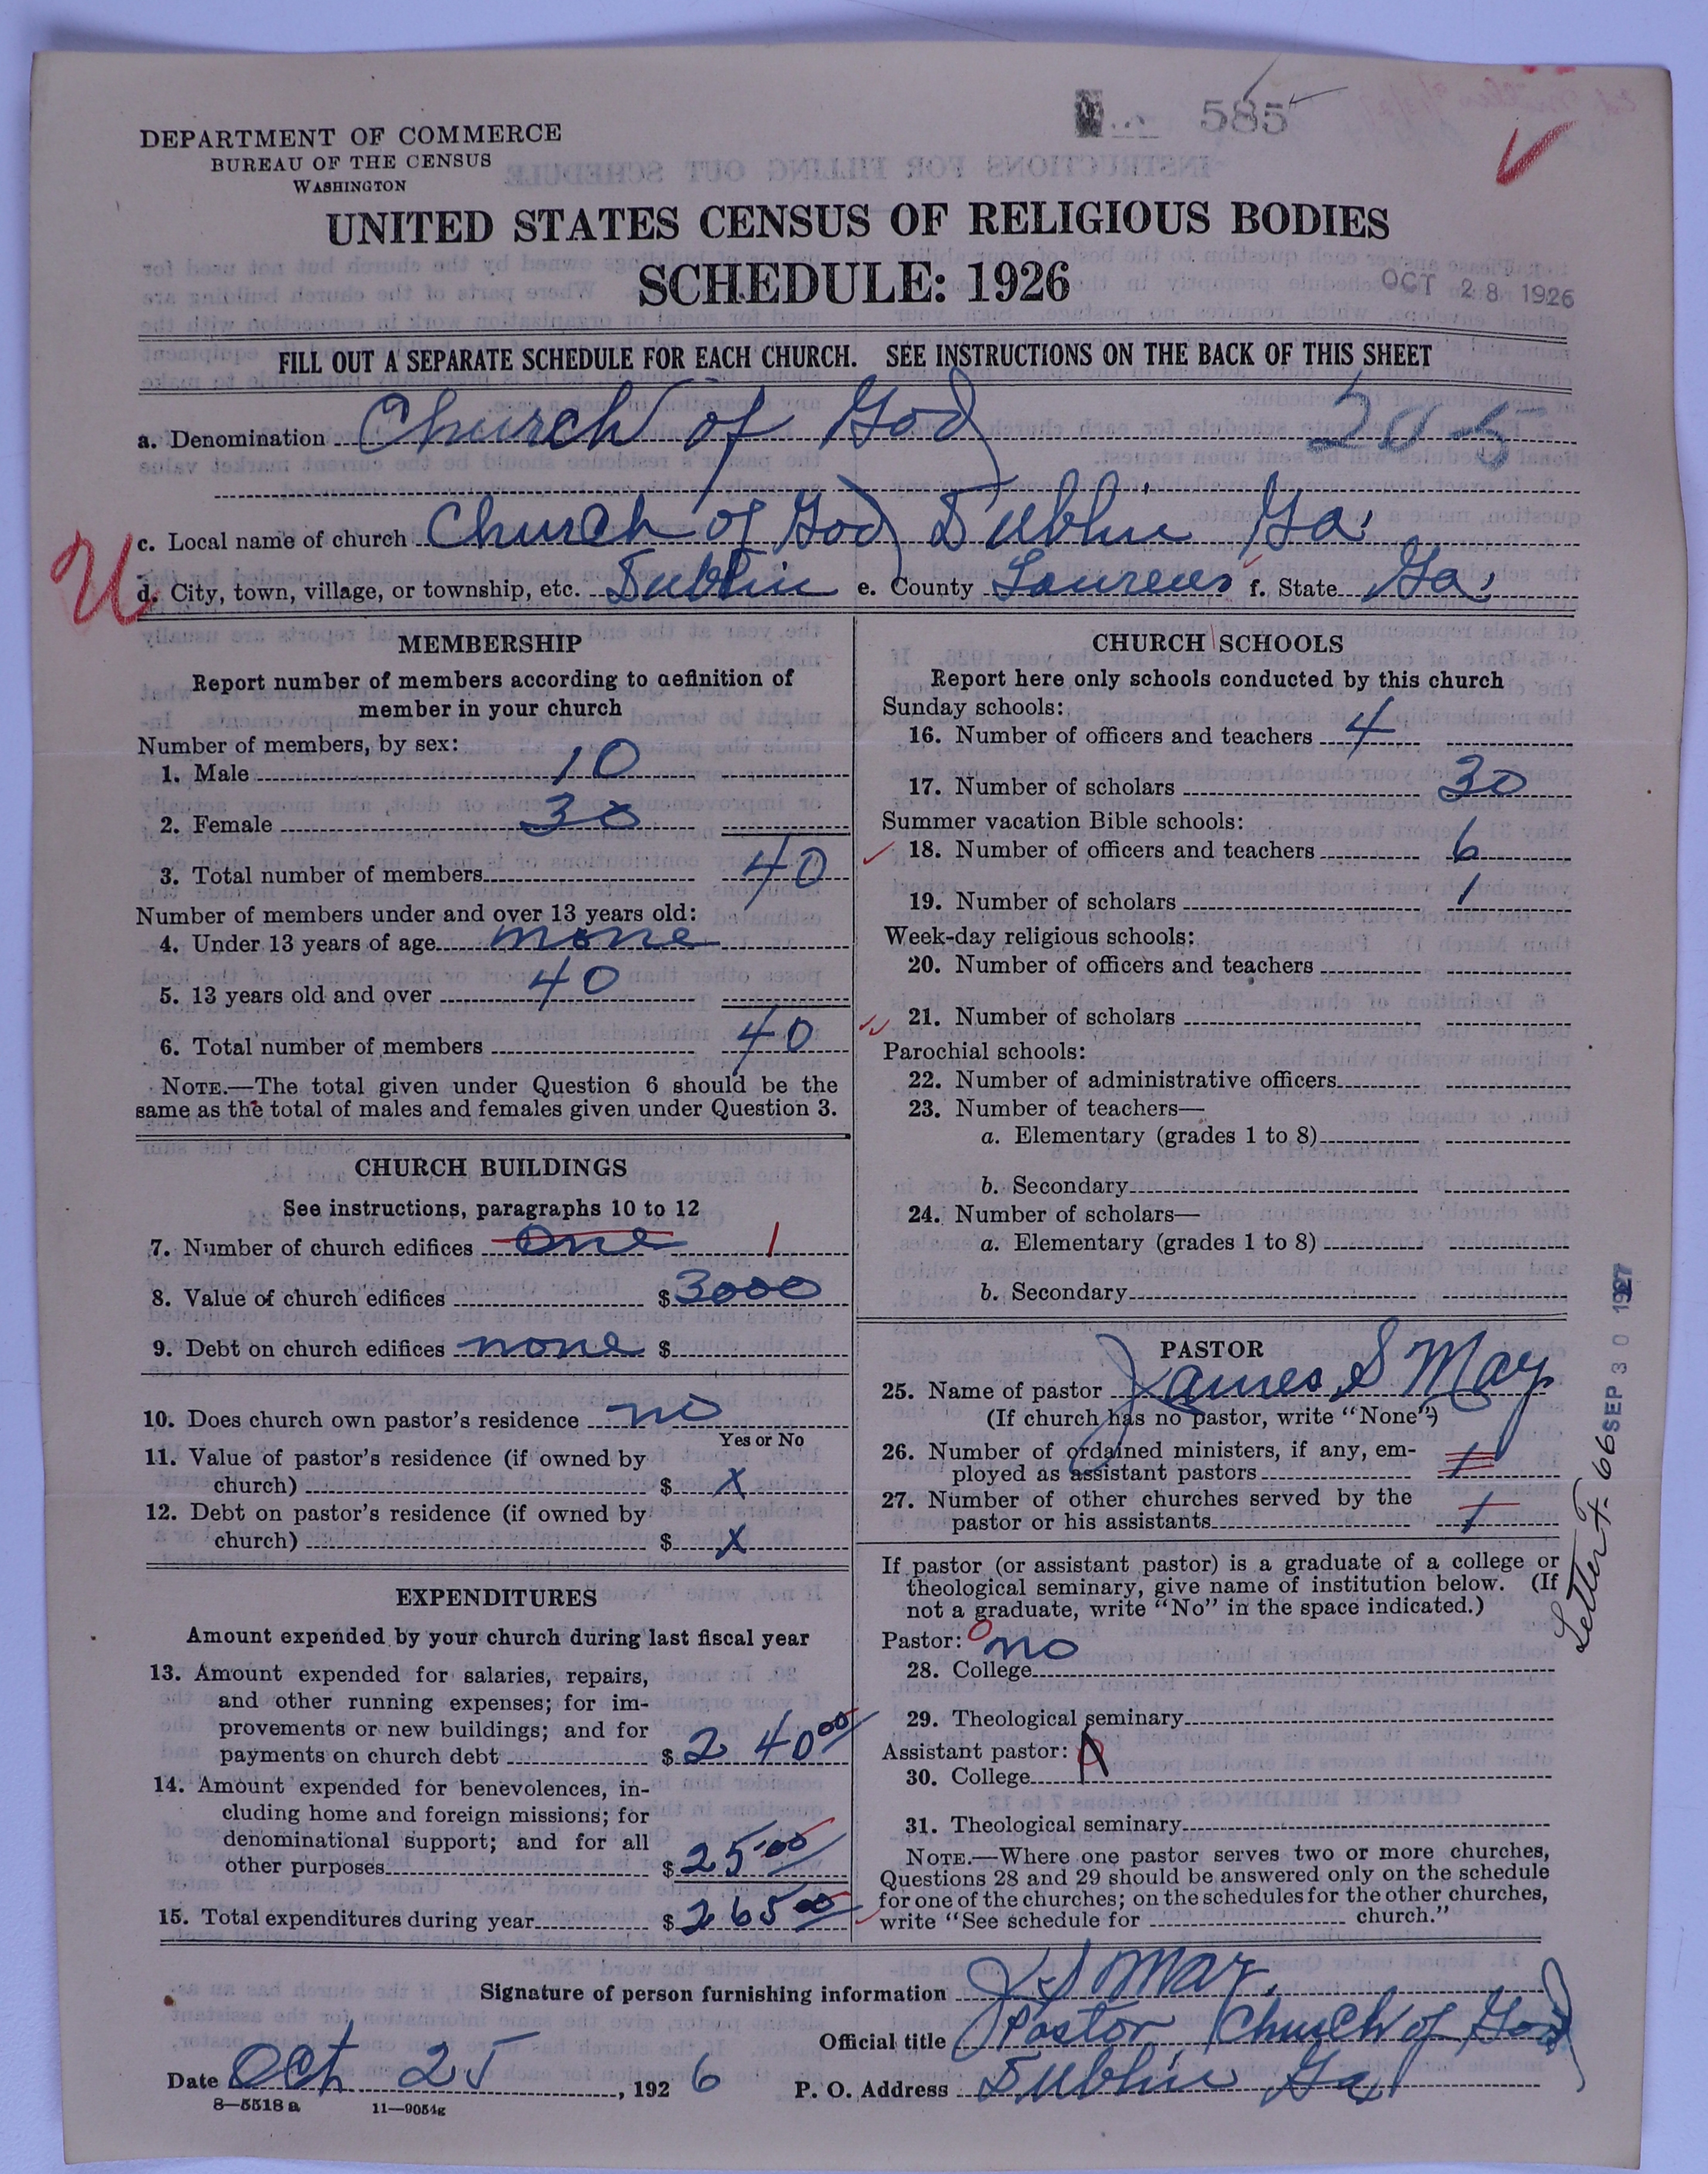 585
DEPARTMENT OF COMMERCE
BUREAU OF THE CENSUS
WASHINGTON
UNITED STATES CENSUS OF RELIGIOUS BODIES
SCHEDULE: 1926
OCT 28 1926
FILL OUT A SEPARATE SCHEDULE FOR EACH CHURCH. SEE INSTRUCTIONS ON THE BACK OF THIS SHEET
a. Denomination Church of God 20-5
c. Local name of church Church of God Dublin Ga.
U
d. City, town, village, or township, etc. Dublin e. County Laurens f. State Ga.
MEMBERSHIP
Report number of members according to definition of
member in your church
Number of members, by sex:
1. Male 10
2. Female 30
3. Total number of members 40
Number of members under and over 13 years old:
4. Under 13 years of age none
5. 13 years old and over 40
6. Total number of members 40
NOTE.—The total given under Question 6 should be the
same as the total of males and females given under Question 3.
CHURCH BUILDINGS
See instructions, paragraphs 10 to 12
7. Number of church edifices one 1
8. Value of church edifices $ 3000
9. Debt on church edifices none $
10. Does church own pastor's residence no
Yes or No
11. Value of pastor's residence (if owned by
church) $ x
12. Debt on pastor's residence (if owned by
church) $ x
EXPENDITURES
Amount expended by your church during last fiscal year
13. Amount expended for salaries, repairs,
and other running expenses; for im-
provements or new buildings; and for
payments on church debt $ 240 00
14. Amount expended for benevolences, in-
cluding home and foreign missions; for
denominational support; and for all
other purposes $ 25 00
15. Total expenditures during year $ 265 00
CHURCH SCHOOLS
Report here only schools conducted by this church
Sunday schools:
16. Number of officers and teachers 4
17. Number of scholars 30
Summer vacation Bible schools:
18. Number of officers and teachers 6
19. Number of scholars 1
Week-day religious schools:
20. Number of officers and teachers
21. Number of scholars
Parochial schools:
22. Number of administrative officers
23. Number of teachers—
a. Elementary (grades 1 to 8)
b. Secondary
24. Number of scholars—
a. Elementary (grades 1 to 8)
b. Secondary
PASTOR
25. Name of pastor James S May
(If church has no pastor, write "None")
26. Number of ordained ministers, if any, em-
ployed as assistant pastors 1
27. Number of other churches served by the
pastor or his assistants 1
If pastor (or assistant pastor) is a graduate of a college or
theological seminary, give name of institution below. (If
not a graduate, write "No" in the space indicated.)
Pastor: no
28. College
29. Theological seminary
Assistant pastor:
30. College
31. Theological seminary
NOTE.—Where one pastor serves two or more churches,
Questions 28 and 29 should be answered only on the schedule
for one of the churches; on the schedules for the other churches,
write "See schedule for church."
Letter F-66 SEP 30 1927
Signature of person furnishing information J S May.
Official title Pastor Church of God
Date Oct 25, 1926 P. O. Address Dublin Ga
8—5518 a 11—9054g